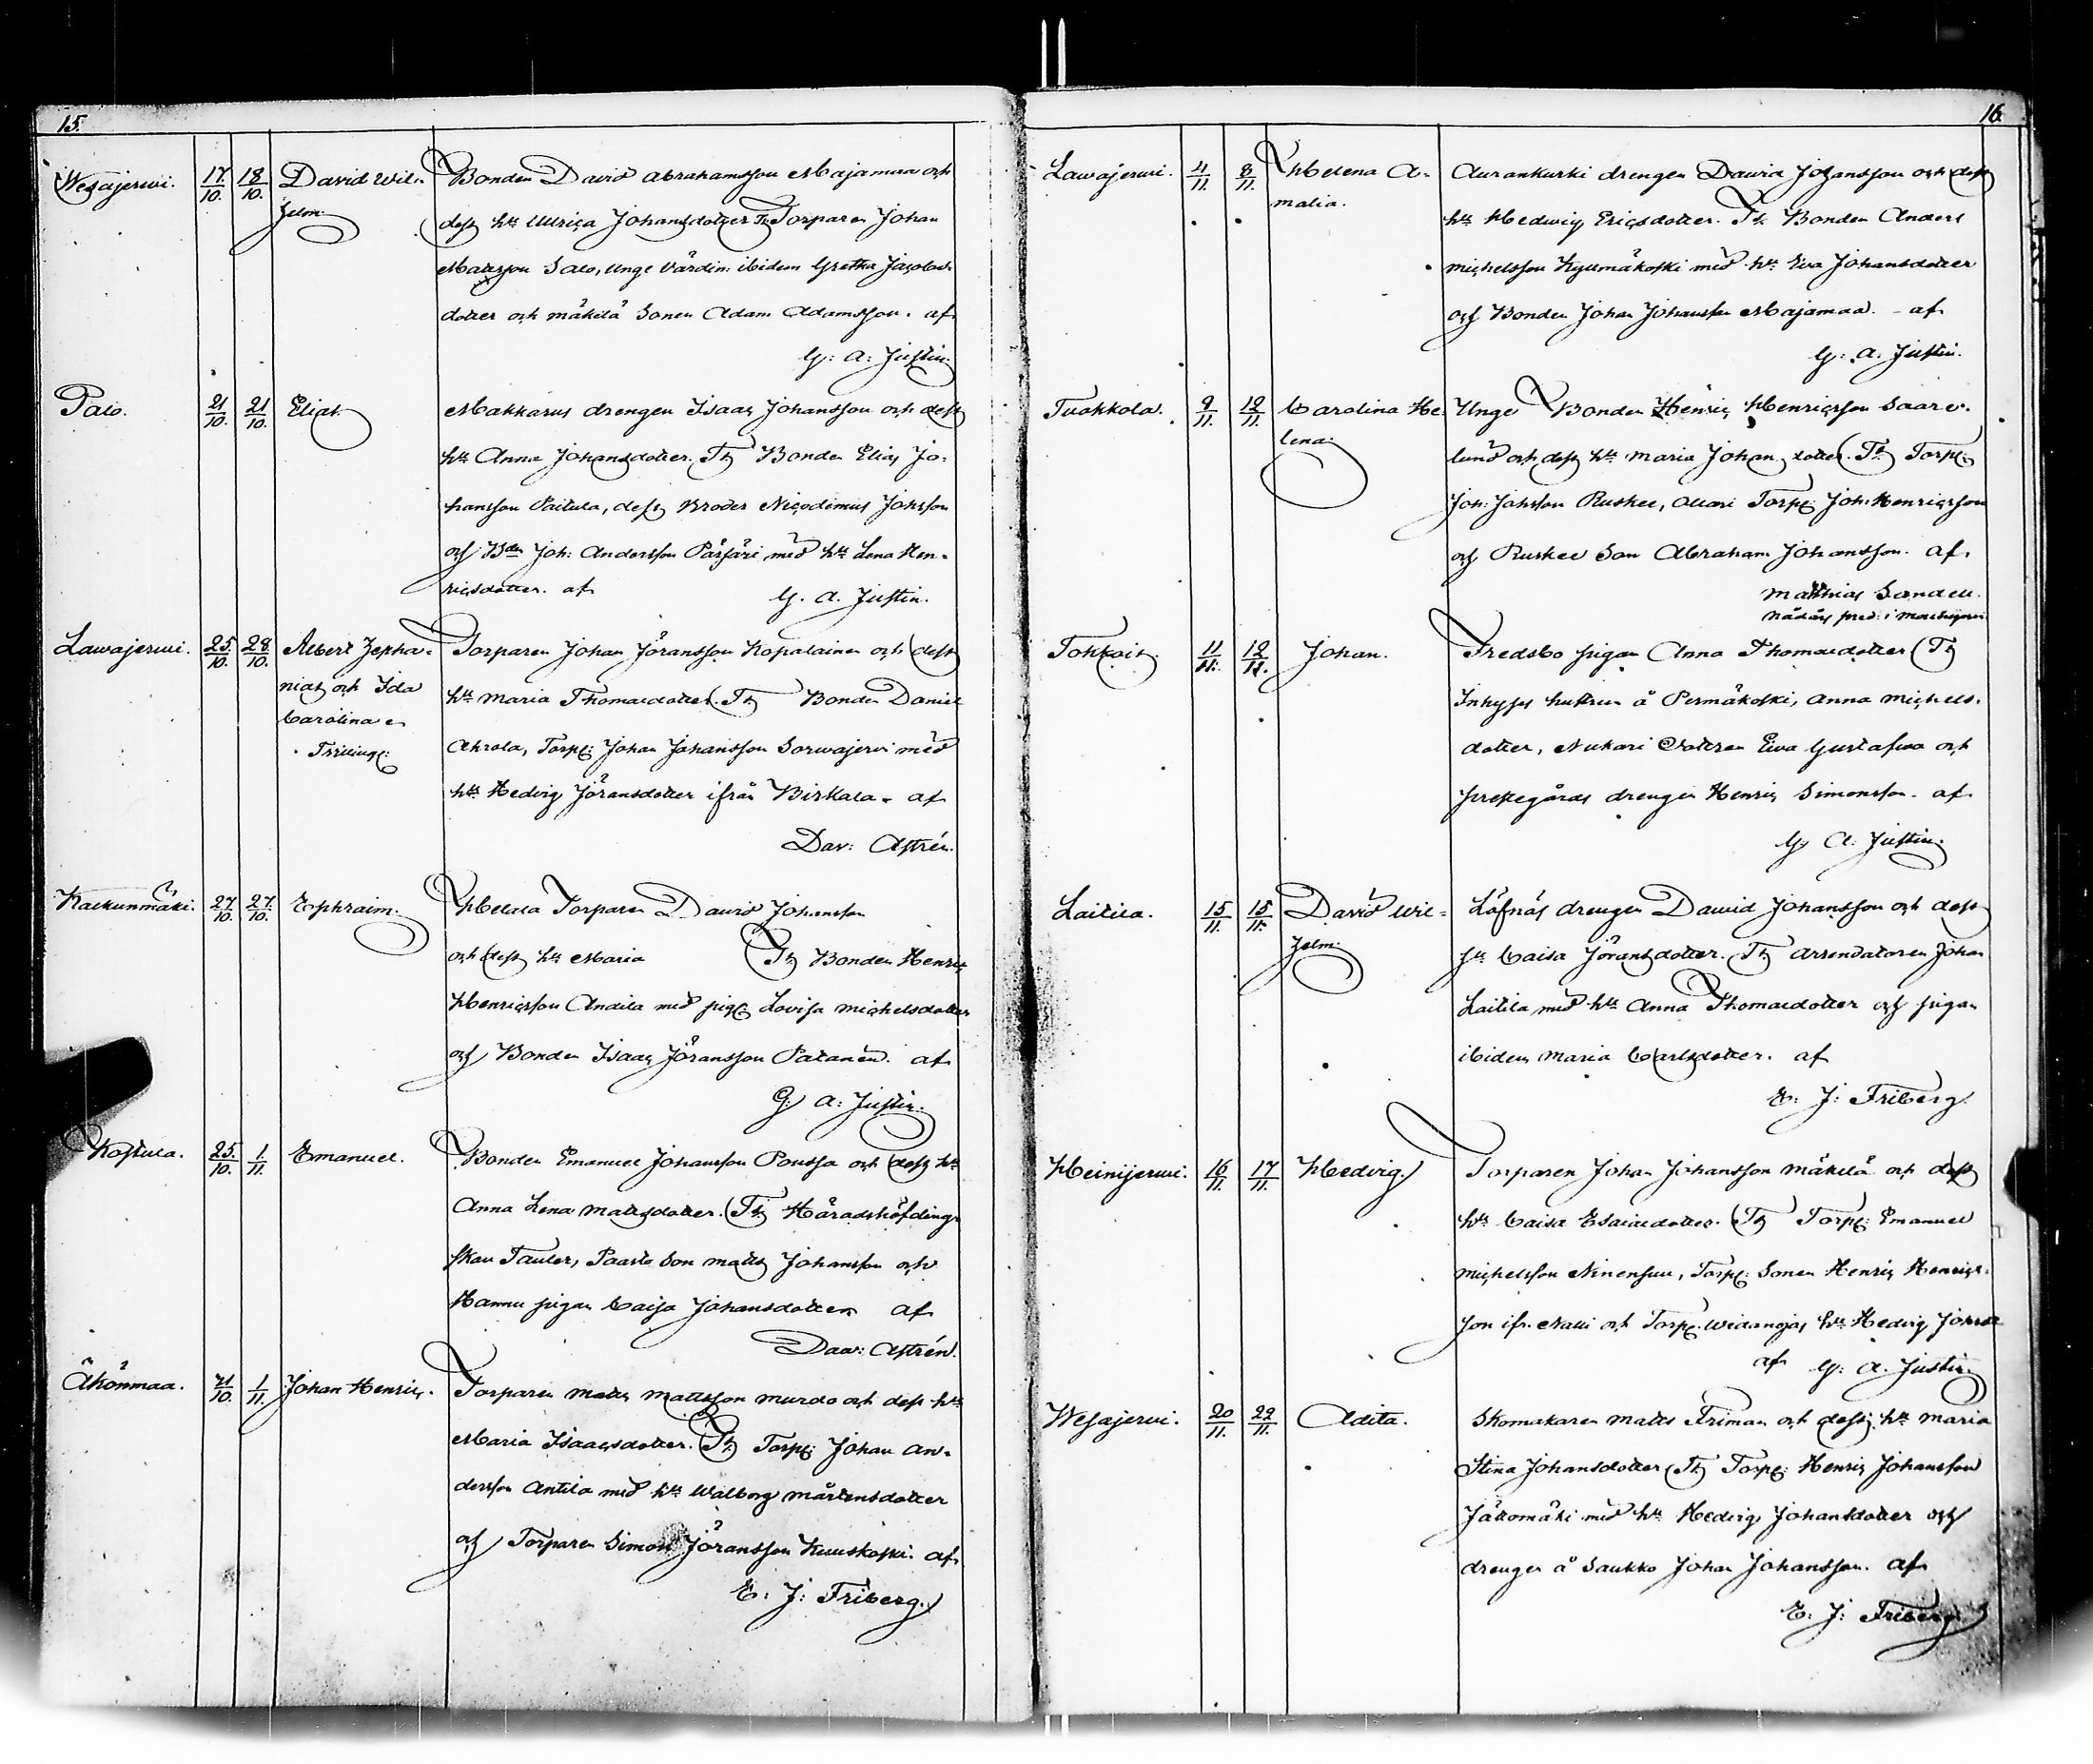 15.
Wesajerwi. 17/10. 18/10. David Wil-
helm.
Bonden David Abrahamsson Majamaa och
dess h:u Ulrica Johansdotter. Tt. Torparen Johan
Mattsson Salo, unge Värdin: ibidem Gretha Jacobs-
dotter och Mäkelä Sonen Adam Adamsson. af
G: A: Justin.
Palo. 21/10. 21/10. Elias.
Makkarus drengen Isaac Johansson och dess
h:u Anna Johansdotter. Tt. Bonden Elias Jo-
hansson Paitula, dess Broder Nicodimus Johsson
och B:den Joh: Andersson Pärjäri med h:u Lena Hen-
ricsdotter. af G. A. Justin.
Lawajerwi. 25/10. 28/10. Albert Jepha-
nias och Ida
Carolina
Trilling:
Torparen Johan Jöransson Kopalainen och dess
h:u Maria Thomasdotter. Tt. Bonden Daniel
Ahrola, Torp: Johan Johansson Sorwajerwi med
h:u Hedvig Jöransdotter ifrån Birkala. af
Dav: Astrén.
Kalkunmäki. 27/10. 27/10. Ephraim.
Torparen David Johansson
och dess h:u Maria Tt. Bonden Henric
Henricsson Andila med pig: Lovisa Michelsdotter
och Bonden Isaac Jöransson Palanen. af
G: A: Justin.
Koskula. 25/10. 1/11. Emanuel.
Bonden Emanuel Johansson Poussa och dess h:u
Anna Lena Mattsdotter. Tt. Häradshöfding-
skan Tauler, Paasto Son Matts Johansson och
Hannu pigan Caisa Johansdotter af
Dav: Astrén.
Äkönmaa. 21/10. 1/11. Johan Henric.
Torparen Matts Mattsson Murdo och dess h:u
Maria Isaacsdotter. Tt. Torp: Johan An-
dersson Antila med h:u Walborg Mårtensdotter
och Torparen Simon Jöransson Kuuskoski. af
E: J: Friberg.
16.
Lawajerwi. 4/11. 8/11. Helena A-
malia.
Aurankurki drengen David Johansson och dess
h:u Hedwig Ericsdotter. Tt. Bonden Anders
Michelsson Kyllmäkoski med h:u Eva Johansdotter
och Bonden Johan Johansson Majamaa. af
G: A: Justin.
Tuokkola. 9/11. 12/11. Carolina He-
lena.
Unge Bonden Henric Henricsson Saare-
lund och dess h:u Maria Johan dotter. Tt. Torp:
Joh: Johsson Ruskee, Torp: Joh: Henricsson
och Ruskee Son Abraham Johansson. af
Matthias Sandell.
Nådårs pred: i
Tokkois. 11/11. 12/11. Johan.
Fredsbo pigan Anna Thomasdotter Tt.
Inhyses hustrun å Permäkoski, Anna Michels-
dotter, Nukari dottren Eva Gustafwa och
prestegårds drengen Henric Simonsson. af
G: A: Justin.
Laitila. 15/11. 15/11. David Wil-
helm.
Löfnäs drengen Dawid Johansson och dess
h:u Caisa Jöransdotter. Tt. Arrendatoren Johan
Laitila med h:u Anna Thomasdotter och pigan
ibidem Maria Carlsdotter. af
E: J: Friberg.
Heinijerwi. 16/11. 17/11. Hedvig.
Torparen Johan Johansson Mäkelä och dess
h:u Caisa Esaiasdotter. Tt. Torp: Emanuel
Michelsson Ninensuu, Torp: Sonen Henric Henrics-
son ifr. och Torp: Widanojas h:u Hedvig
af G: A: Justin.
Wesajerwi. 20/11. 22/11. Adita.
Skomakaren Matts Friman och dess h:u Maria
Stina Johansdotter Tt. Torp: Henric Johansson
Jäkomäki med h:u Hedvig Johansdotter och
drengen å Saukko Johan Johansson. af
E: J: Friberg.